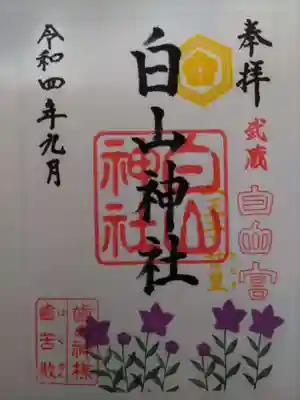 奉拝
武蔵
白山宮
白山神社
白山
神社
令和四年九月
歯の神様